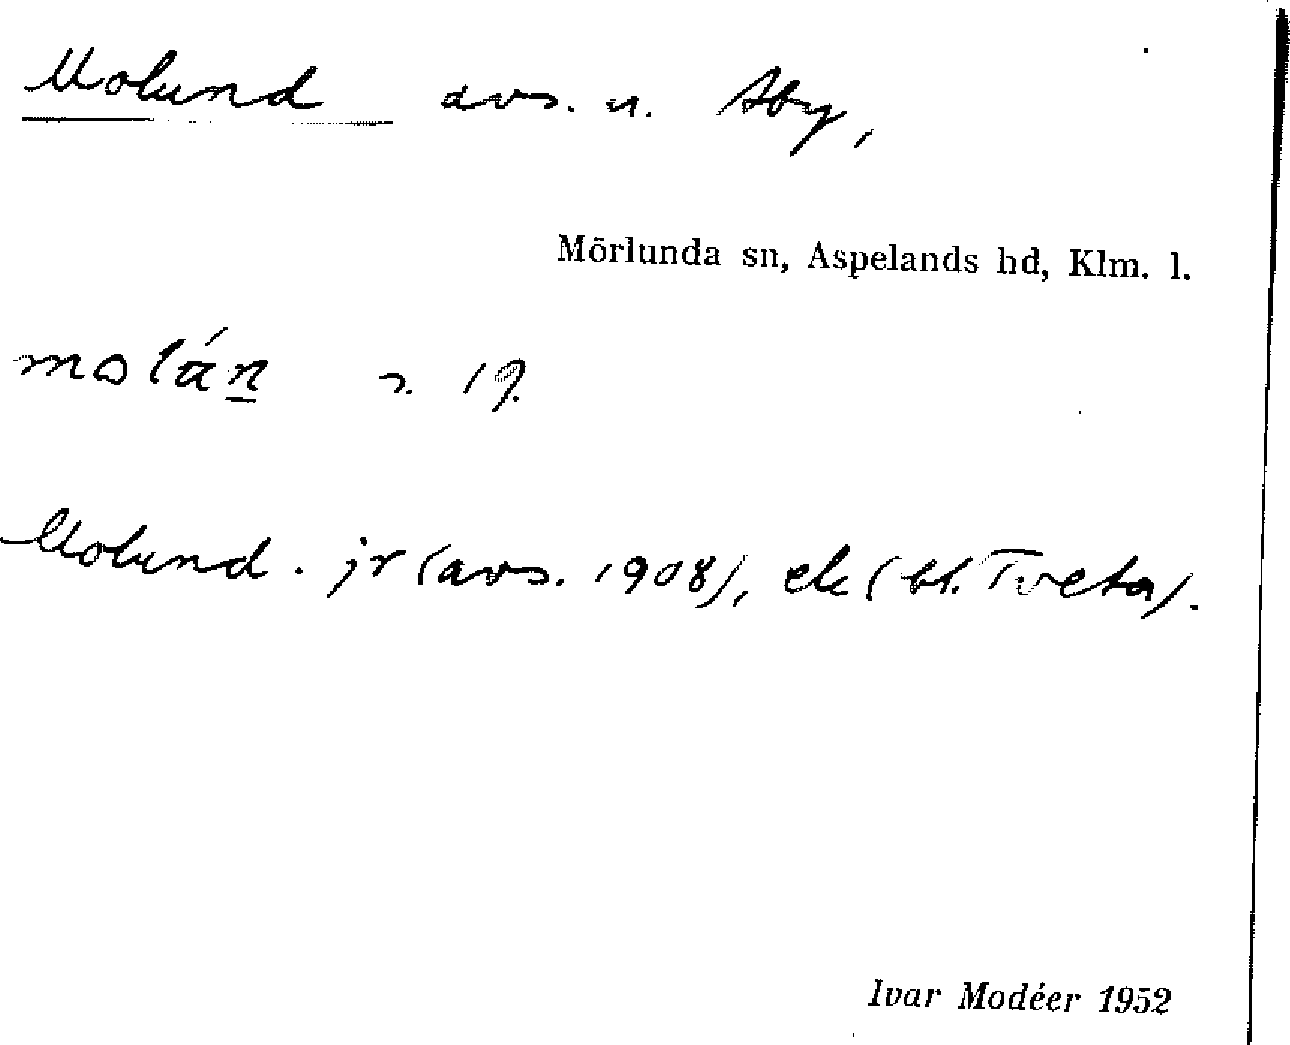 Molund avs. u. Åby,
Mörlunda sn, Aspelands hd, Klm. l.
molán s. 19.
Molund. jr (avs. 1908), ek (bl. Tveta).
Ivar Modéer 1952